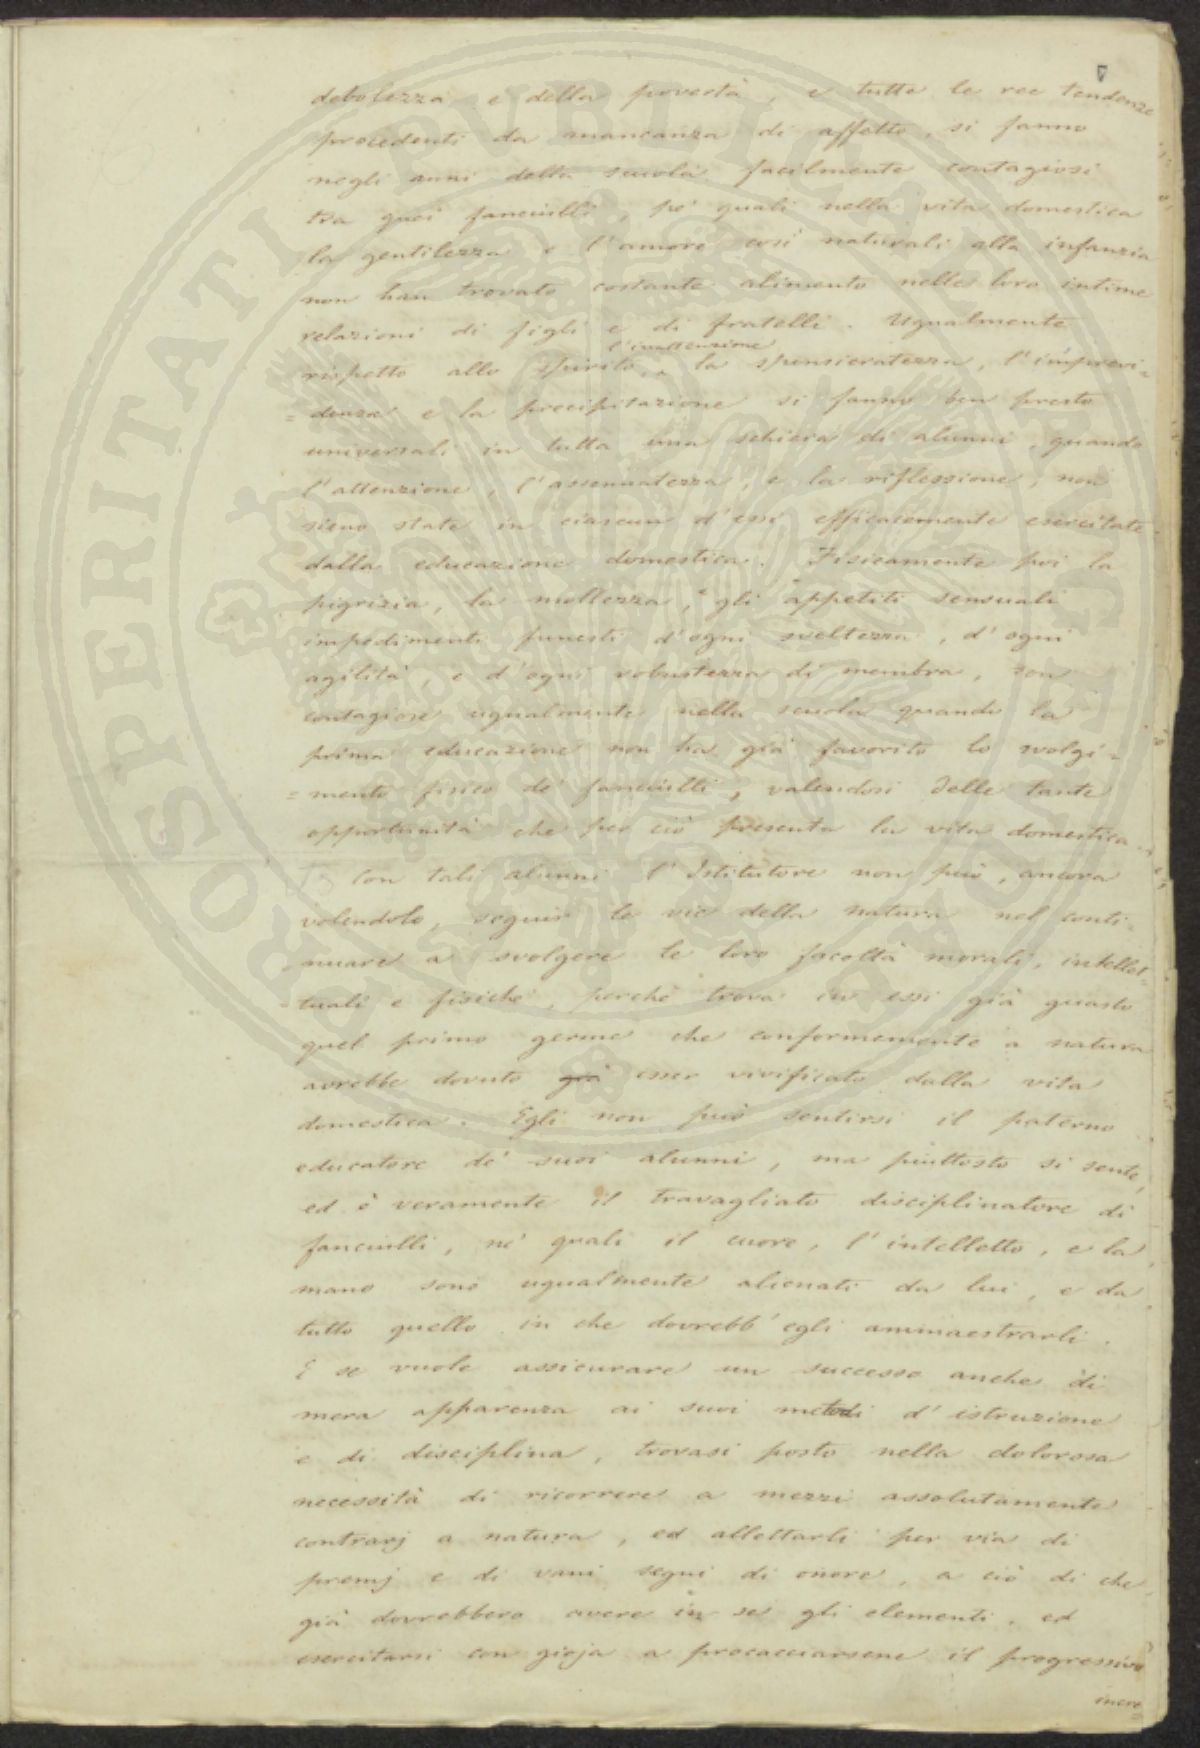 debolezza e della povertà, e tutte le ree tendenze
procedenti da mancanza di affetto, si fanno
negli anni della scuola facilmente contagiosi
tra quei fanciulli, pe' quali nella vita domestica
la gentilezza e l'amore così naturali alla infanzia
non han trovato costante alimento nelle loro intime
relazioni di figli e di fratelli. Ugualmente
l'inattenzione
rispetto allo spirito, la spensieratezza, l'imprevi=
=denza e la precipitazione si fanno ben presto
universali in tutta una schiera di alunni, quando
l'attenzione, l'assennatezza, e la riflessione, non
sieno state in ciascun d'essi efficacemente esercitate
dalla educazione domestica. Fisicamente poi la
pigrizia, la mollezza, e gli appetiti sensuali
impedimenti funesti d'ogni sveltezza, d'ogni
agilità, e d'ogni robustezza di membra, son
contagiose ugualmente nella scuola quando la
prima educazione non ha già favorito lo svolgi=
=mento fisico de' fanciulli, valendosi delle tante
opportunità che per ciò presenta la vita domestica.
Con tali alunni l'Istitutore non può, ancora
volendolo, seguir le vie della natura nel conti=
nuare a svolgere le loro facoltà morali, intellet=
tuali e fisiche, perchè trova in essi già guasto
quel primo germe che conformemente a natura
avrebbe dovuto già esser vivificato dalla vita
domestica. Egli non può sentirsi il paterno
educatore de' suoi alunni, ma piuttosto si sente,
ed è veramente il travagliato disciplinatore di
fanciulli, ne' quali il cuore, l'intelletto, e la
mano sono ugualmente alienati da lui, e da
tutto quello in che dovrebb'egli ammaestrarli.
E se vuole assicurare un successo anche di
mera apparenza ai suoi metodi d'istruzione
e di disciplina, trovasi posto nella dolorosa
necessità di ricorrere a mezzi assolutamente
contrarj a natura, ed allettarli per via di
premj e di vani segni di onore, a ciò di che
già dovrebbero avere in sè gli elementi, ed
esercitarsi con gioja a procacciarsene il progressivo
incre=
PROSPERITATI PVBLICAE AVGENDAE